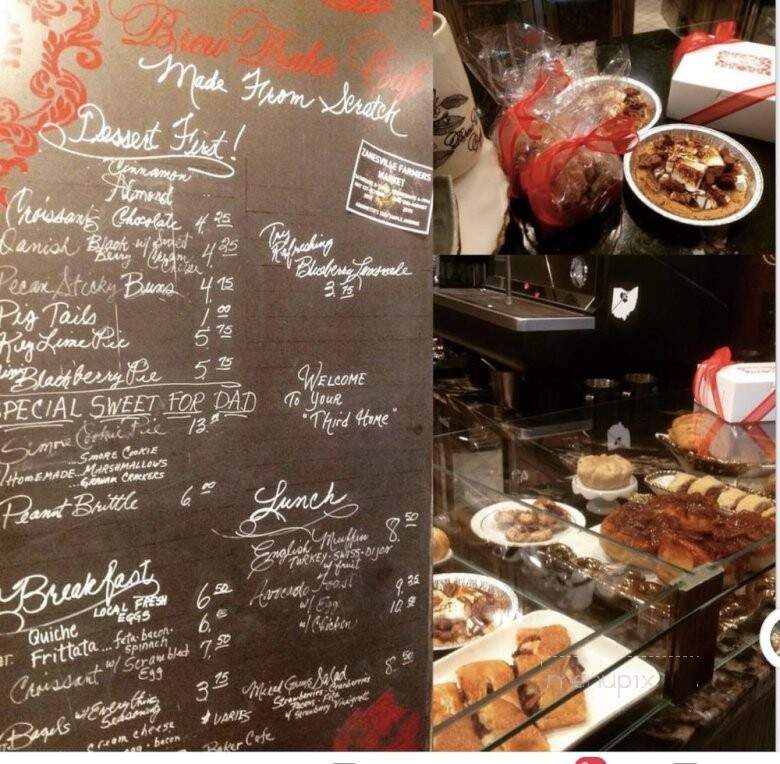 Brew Baker Cafe
Made From Scratch
Dessert First!
Cinnamon
Almond
Croissants Chocolate 4.25
Danish Black Berry w/ Sweet Cream Cheese 4.25
Pecan Sticky Buns 4.75
Pig Tails 1.00
Key Lime Pie 5.75
Mini Blackberry Pie 5.75
SPECIAL SWEET FOR DAD
Smore Cookie Pie 13.
...SMORE COOKIE
HOMEMADE...MARSHMALLOWS
...GRAHAM CRACKERS
Peanut Brittle 6.00
ZANESVILLE FARMERS
MARKET
Try
Refreshing
Blueberry Lemonade
3.75
WELCOME
TO YOUR
"Third Home"
Lunch
English Muffin 8.50
TURKEY-SWISS-DIJON
w/ fruit
Avocado Toast 9.25
w/ Egg 10.
w/ Chicken
Mixed Greens Salad 8.50
Strawberries, Cranberries
Pecans, Feta
w/ Strawberry Vinaigrette
Breakfast
LOCAL FRESH
EGGS
Quiche 6.50
or. Frittata... feta-bacon-spinach 6.
Croissant w/ Scrambled Egg 7.50
Bagels w/ Everything Seasoning 3.75
cream cheese $ VARIES
egg. bacon
Baker Cafe
menupix